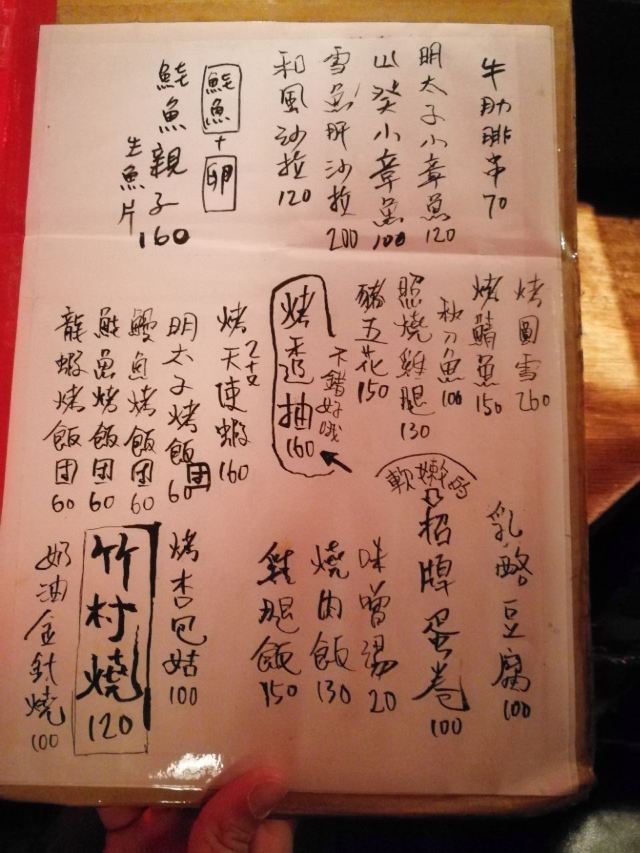 牛肋排串 70
明太子小章魚 120
山葵小章魚 100
雪魚肝沙拉 200
和風沙拉 120
鮭魚 + 卵
鮭魚親子 160
生魚片
烤圓雪 260
烤鯖魚 150
秋刀魚 100
照燒雞腿 130
豬五花 150
烤透抽 160
不錯好哦
烤天使蝦 160
2支
明太子烤飯团 60
鰻魚烤飯团 60
鮭魚烤飯团 60
龍蝦烤飯团 60
乳酪豆腐 100
軟嫩的
招牌蛋卷 100
味噌湯 20
燒肉飯 130
雞腿飯 150
烤杏包姑 100
竹村燒 120
奶油金針燒 100